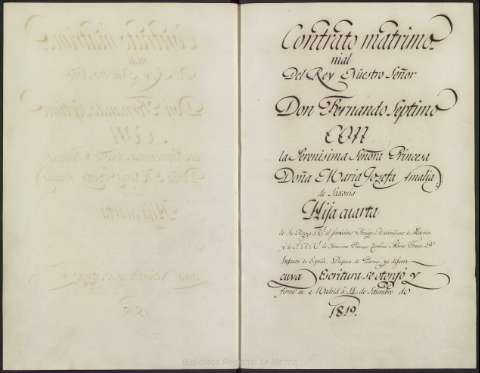 Contrato matrimo-
nial
Del Rey Nuestro Señor
Don Fernando Septimo
CON
la Serenisima Señora Princesa
Doña Maria Jozefa Amalia
de Saxonia
Hija cuarta
Infanta de España Duquesa de Parma ya difunta
cuya Escritura se otorgó y
firmó en Madrid à de Setiembre de
1819.